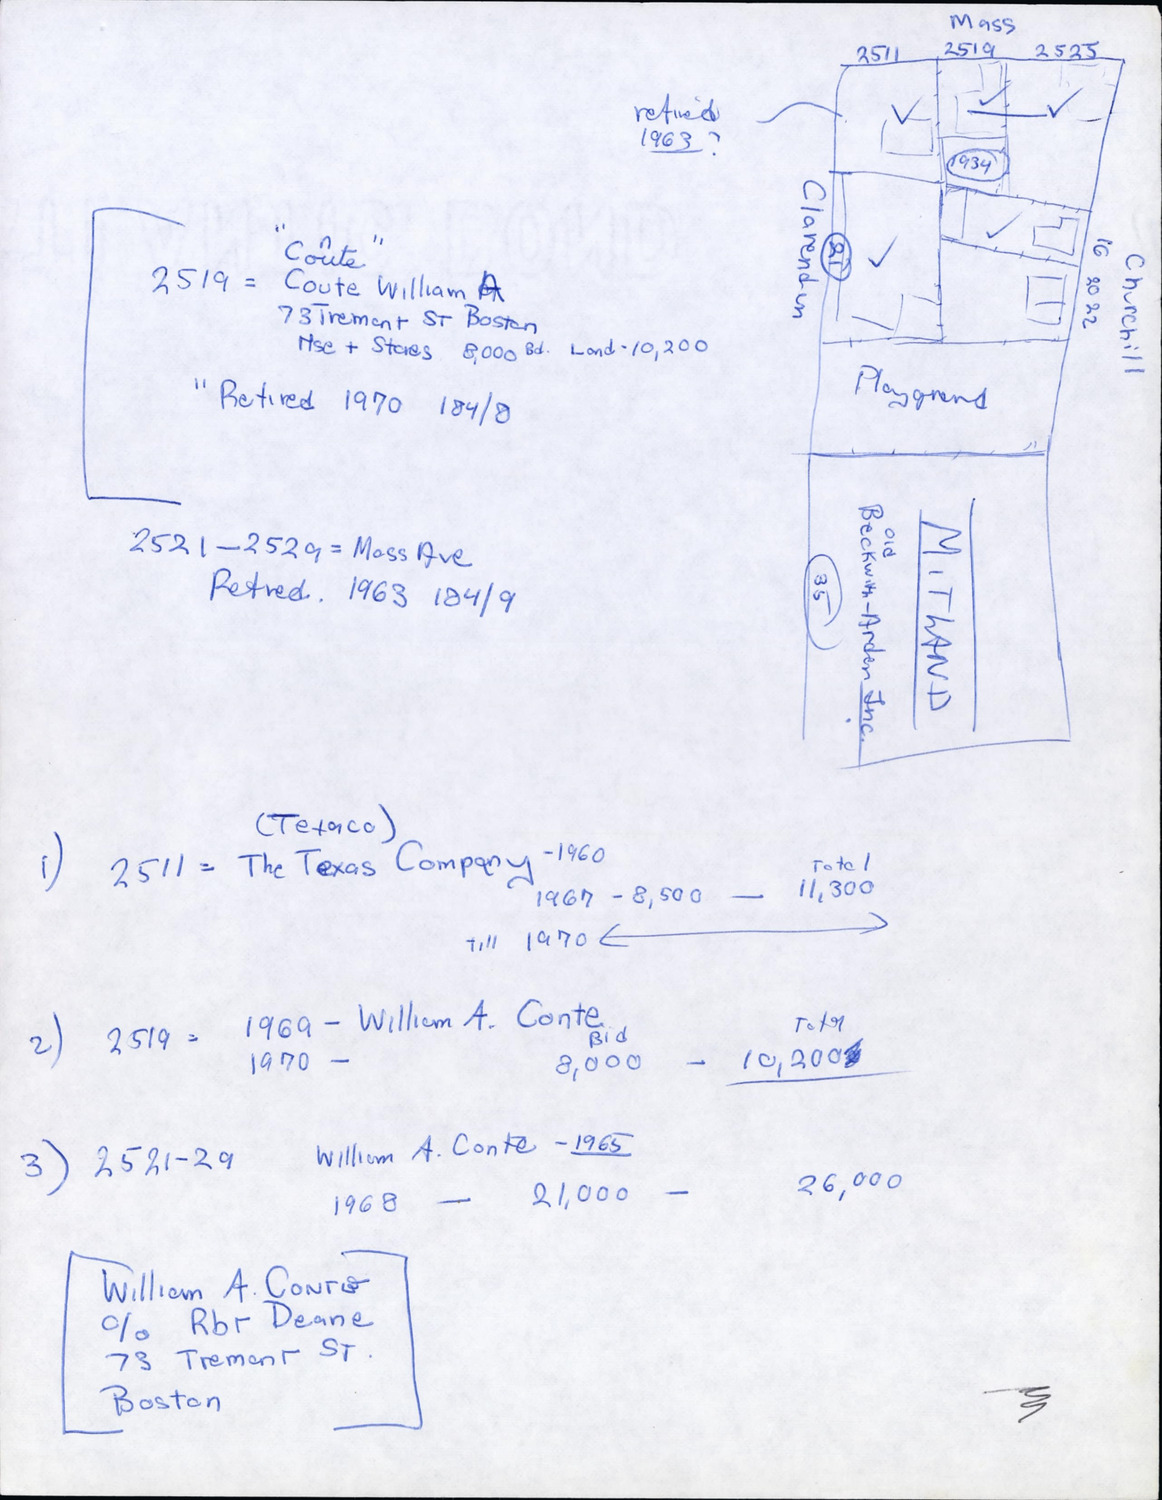 Mass
2511 2519 2525
retired
1963?
1934
Clarendon
21
16 20 22
Churchill
Playgrond
MITHAND
old
Beckwith-Arden Inc.
35
"Coñte"
2519 = Coute William A
73 Tremont St Boston
Hse + Stores 8,000 Bd. Land-10,200
"Retired 1970 184/8
2521-2529 = Mass Ave
Retired. 1963 184/9
(Texaco)
1) 2511 = The Texas Company -1960
Total
1967 - 8,500 — 11,300
till 1970
2) 2519 = 1969 - William A. Conte
Bld Total
1970 - 8,000 - 10,200
3) 2521-29 William A. Conte - 1965
1968 — 21,000 — 26,000
William A. Conte
c/o Rbt Deane
73 Tremont St.
Boston